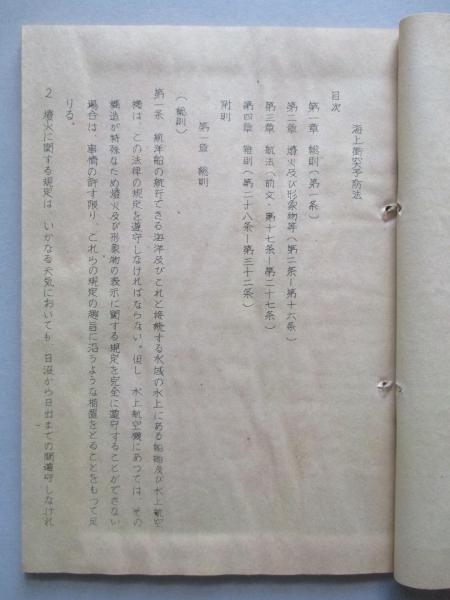 海上衝突予防法
目次
第一章 総則(第一条)
第二章 燈火及び形象物等(第二条ー第十六条)
第三章 航法(前文・第十七条ー第二十七条)
第四章 雑則(第二十八条ー第三十二条)
附則
第一章 総則
(総則)
第一条 航洋船の航行できる海洋及びこれと接続する水域の水上にある船舶及び水上航空
機は、この法律の規定を遵守しなければならない。但し、水上航空機にあつては、その
構造が特殊なため燈火及び形象物の表示に関する規定を完全に遵守することができない
場合は、事情の許す限り、これらの規定の趣旨に沿うような措置をとることをもつて足
りる。
2 燈火に関する規定は、いかなる天気においても、日没から日出までの間遵守しなけれ